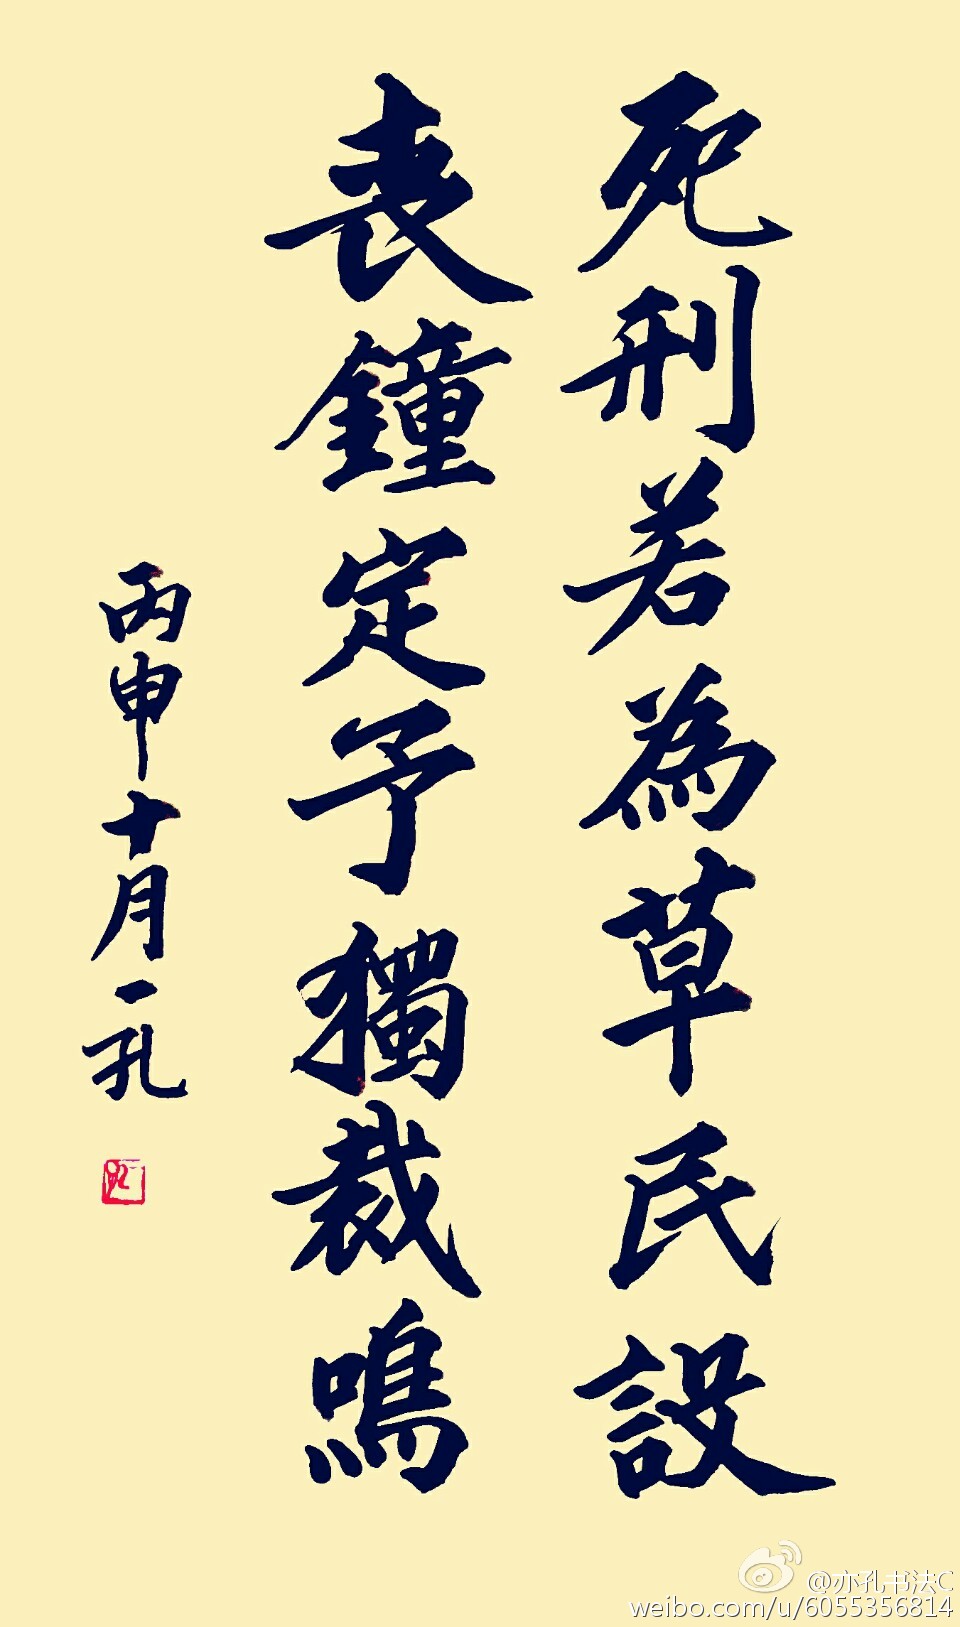 死刑若為草民設
喪鐘定予獨裁鳴
丙申十月一孔
@亦孔书法C
weibo.com/u/6055356814